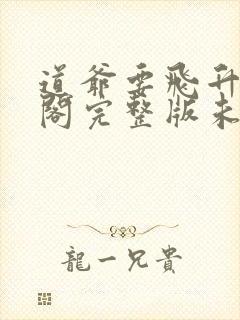 道爷要飛升
閣完整版未
龍一兄貴